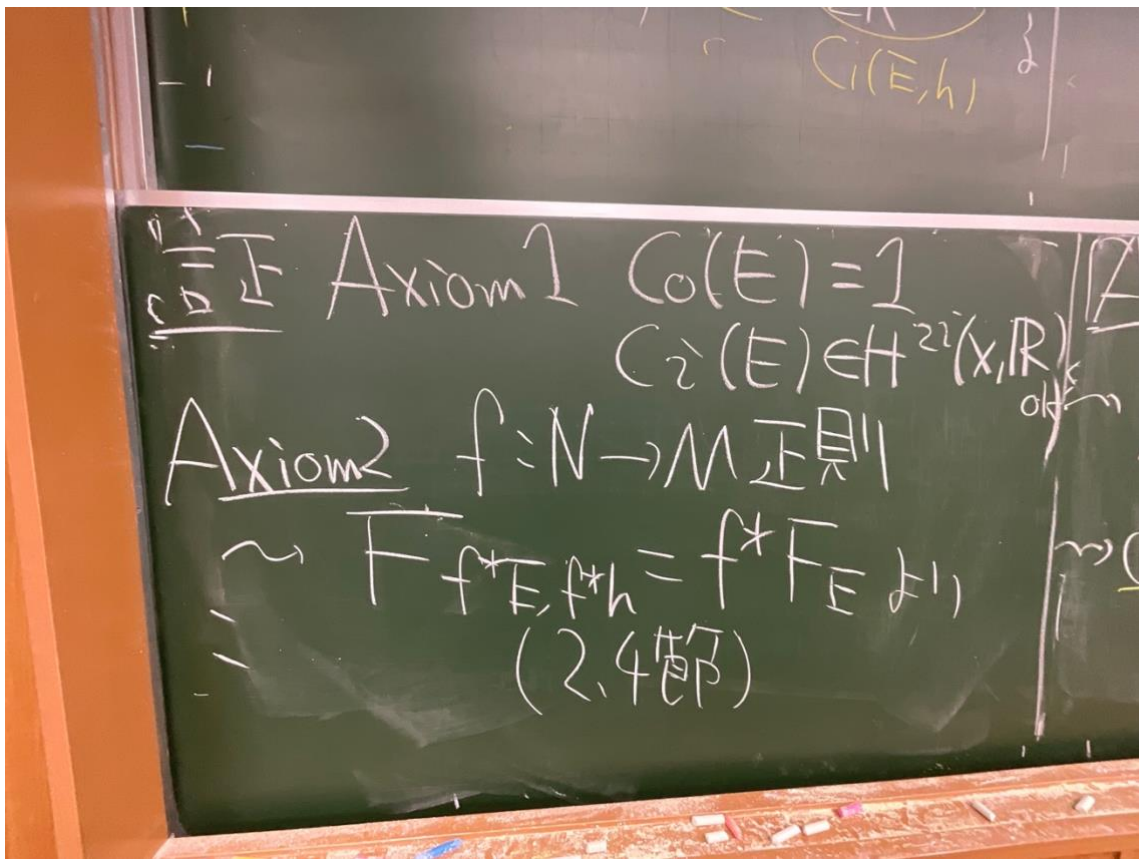 Ci(E,h)
証 Axiom1 C₀(E)=1
Cᵢ(E)∈H²ⁱ(X,ℝ)
Axiom2 f:N→M 正則
⇝ F_{f*E,f*h} = f*F_E より
(2.4節)